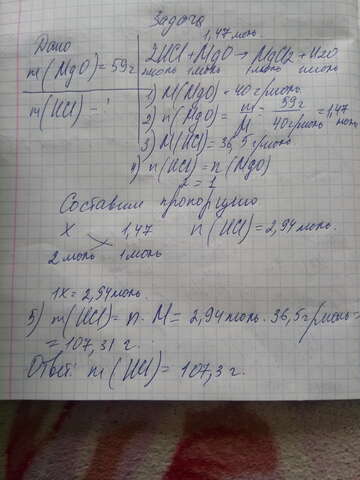 Задача
1,47 моль
Дано
m(MgO) = 59 г
m(HCl) -
2HCl + MgO → MgCl2 + H2O
2моль 1моль 1моль 1моль
1) M(MgO) = 40 г/моль.
2) n(MgO) = m/M = 59 г/40 г/моль = 1,47 моль
3) M(HCl) = 36,5 г/моль
4) n(HCl) = n(MgO)
2 = 1
Составим пропорцию
x 1,47 n(HCl) = 2,94 моль.
2 моль 1 моль
1x = 2,94 моль.
5) m(HCl) = n · M = 2,94 моль · 36,5 г/моль =
= 107,31 г.
Ответ: m(HCl) = 107,3 г.